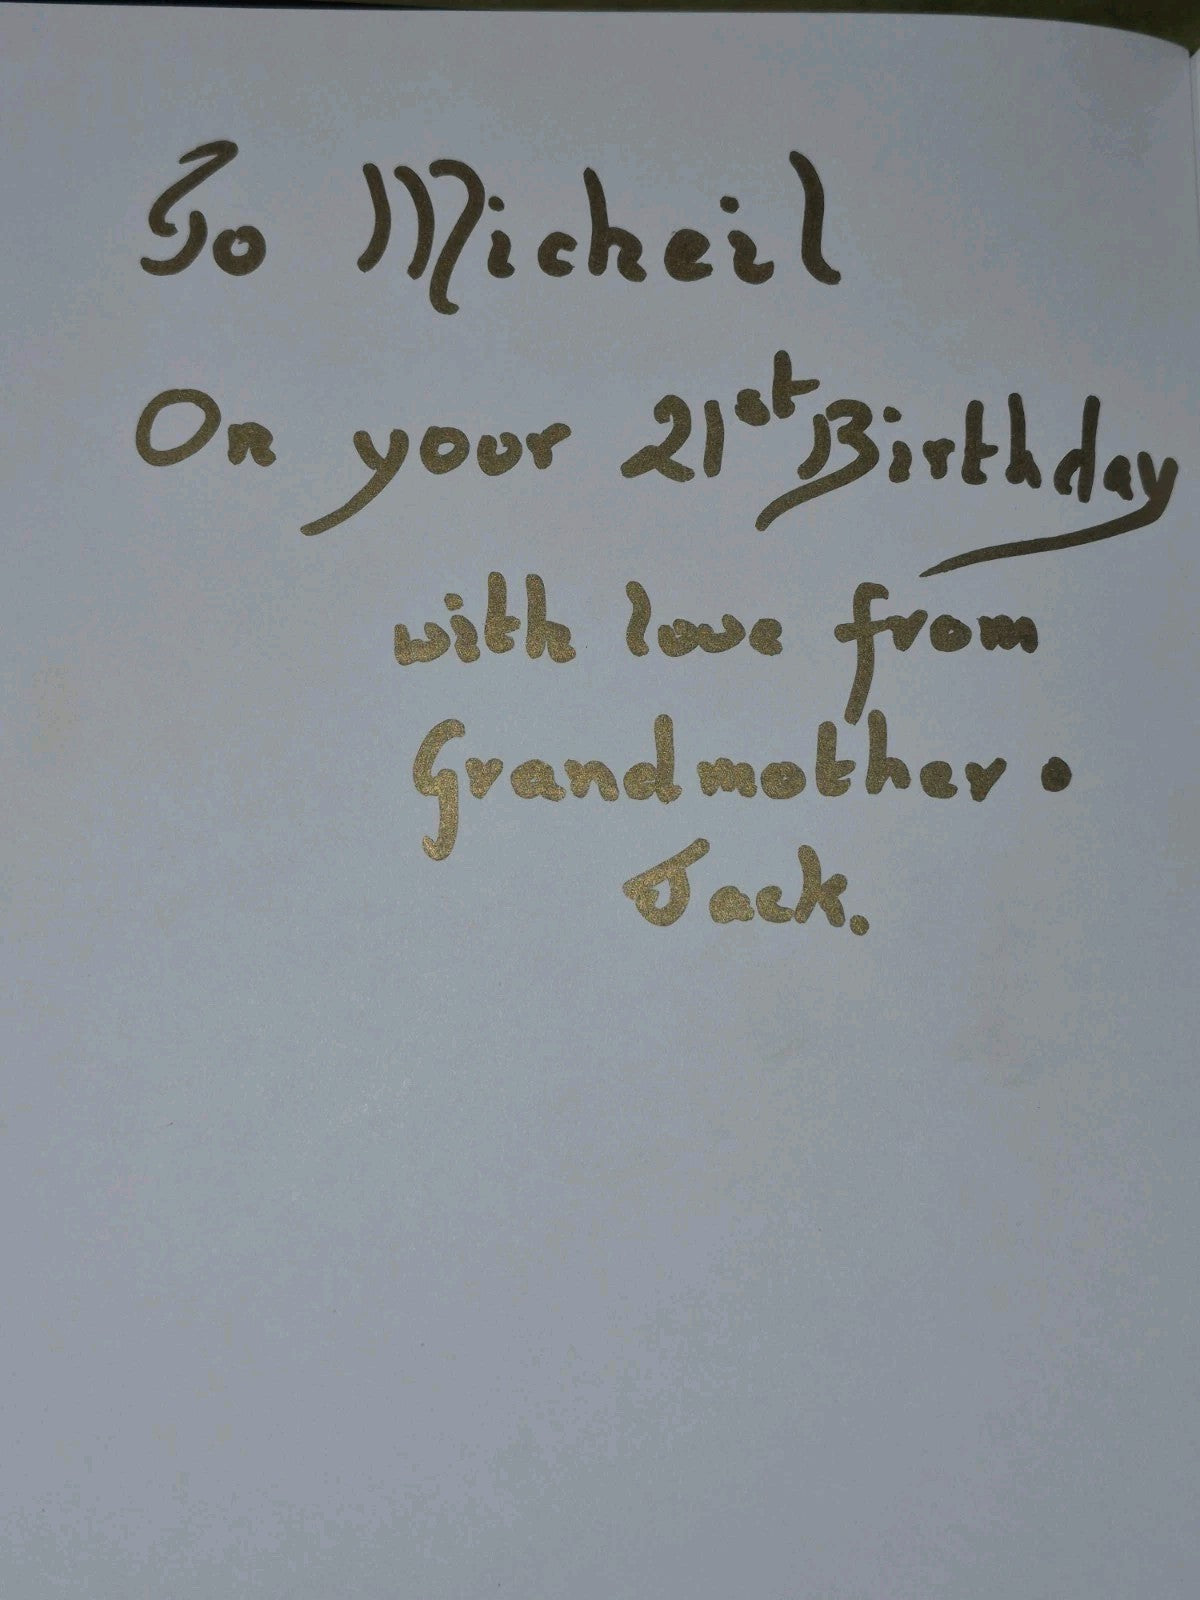 To Micheil
On your 21st Birthday
with love from
Grandmother.
Jack.